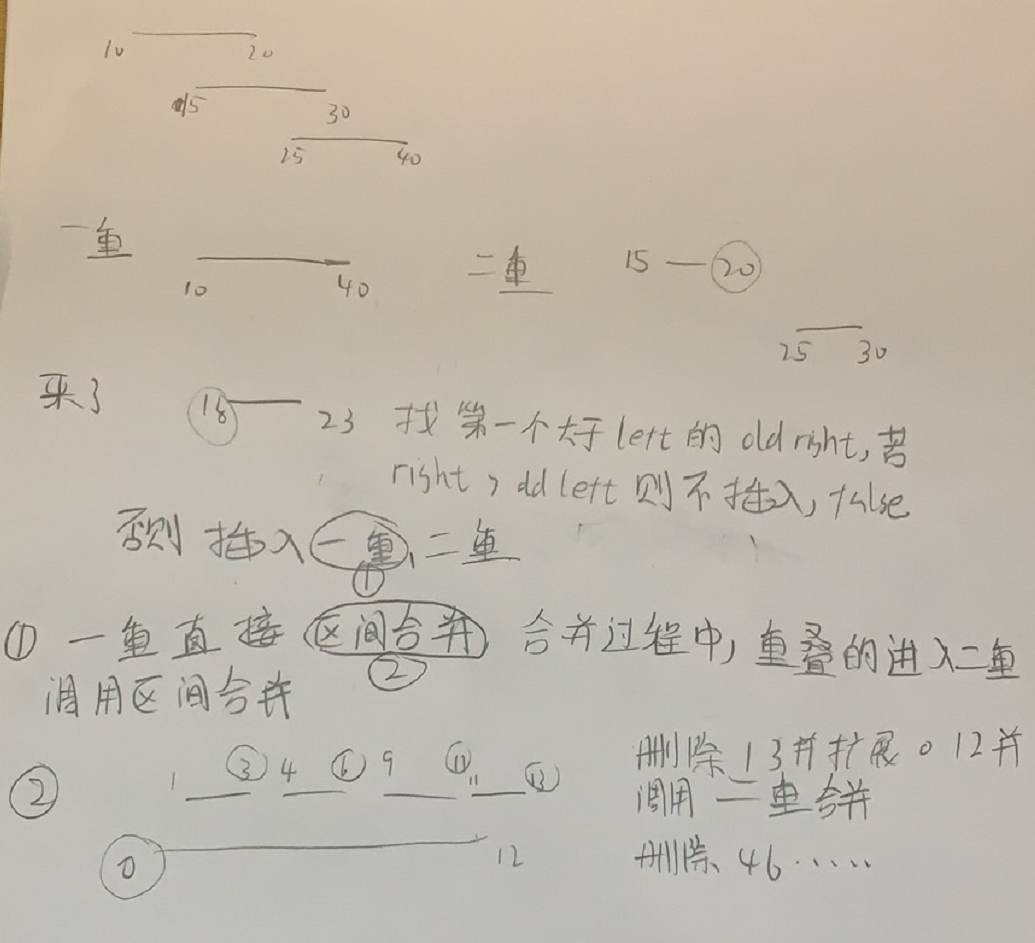 10 20
15 30
25 40
一重 10 40 二重 15 — 20
25 30
来了 18 23 找第一个大于left的old right,若
right > old left则不插入, false
否则 插入一重、二重
①
① 一重直接区间合并 合并过程中,重叠的进入二重
②
调用区间合并
② 1 3 4 6 9 11 11 13 删除 13并扩展 0 12并
调用二重合并
0 12 删除、46……